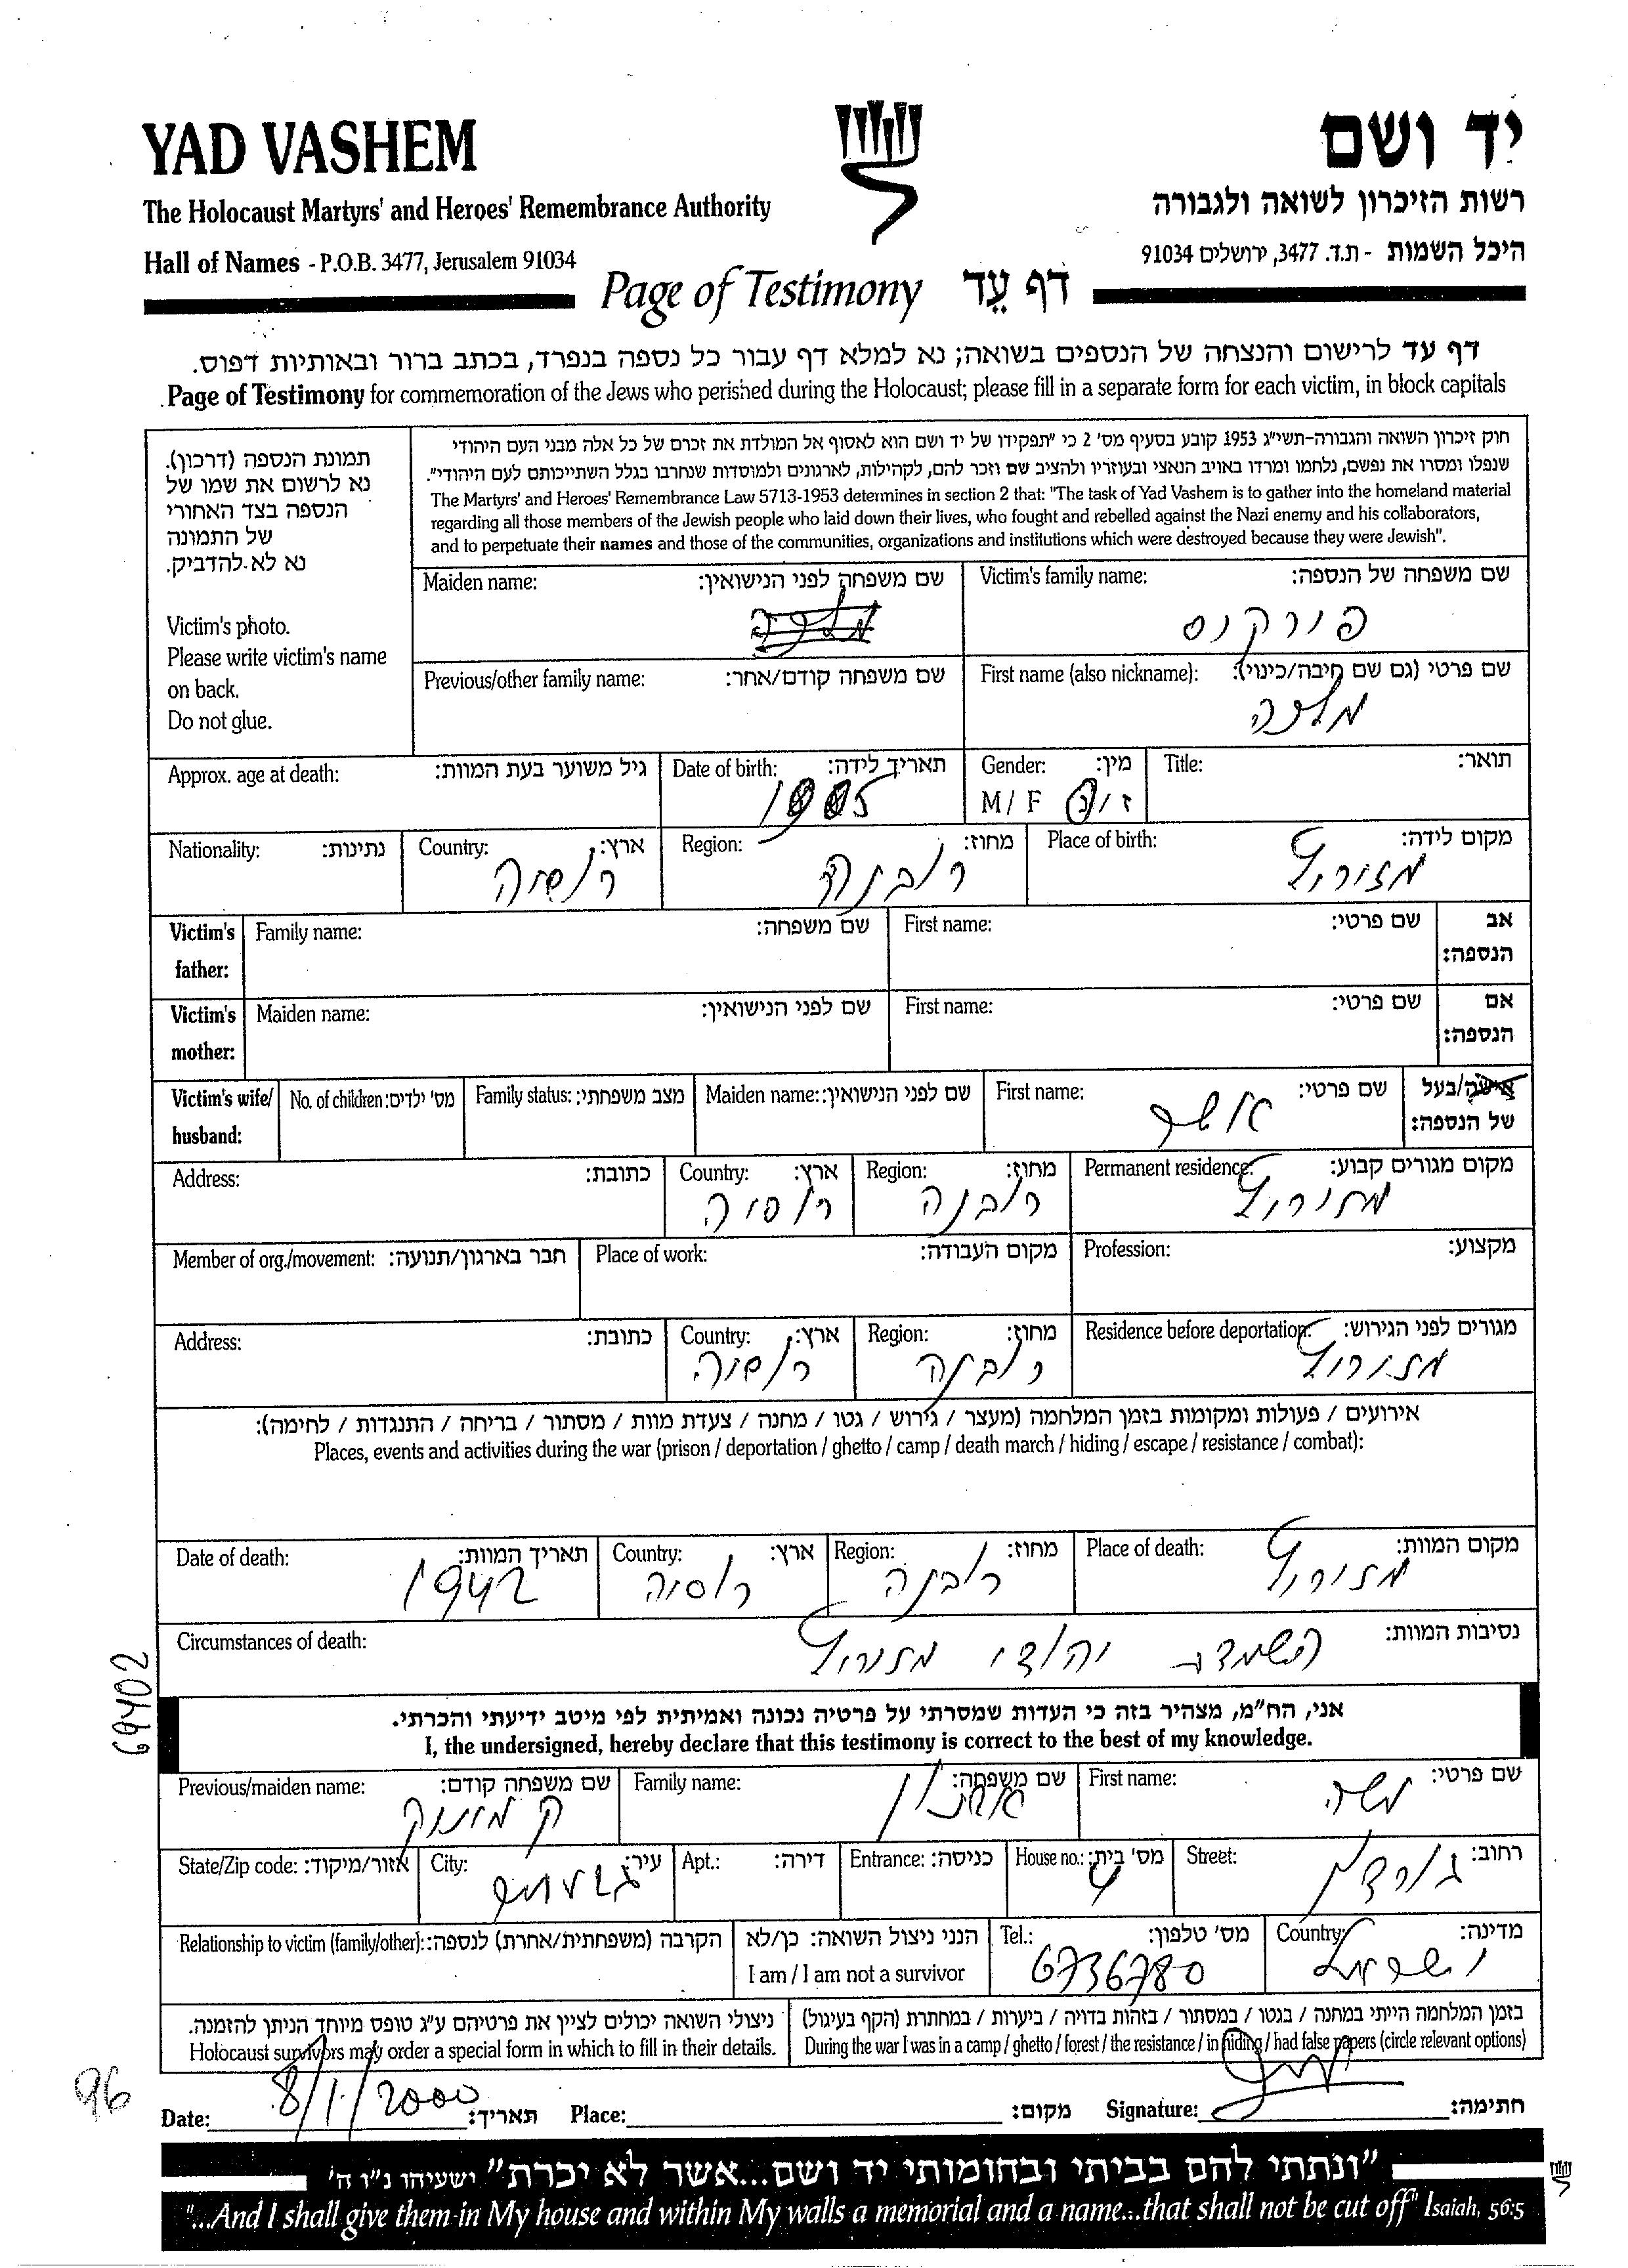 YAD VASHEM
יד ושם
The Holocaust Martyrs' and Heroes' Remembrance Authority
רשות הזיכרון לשואה ולגבורה
Hall of Names - P.O.B. 3477, Jerusalem 91034
היכל השמות - ת.ד. 3477, ירושלים 91034
Page of Testimony דף עֵד
דף עד לרישום והנצחה של הנספים בשואה; נא למלא דף עבור כל נספה בנפרד, בכתב ברור ובאותיות דפוס.
Page of Testimony for commemoration of the Jews who perished during the Holocaust; please fill in a separate form for each victim, in block capitals
תמונת הנספה (דרכון).
נא לרשום את שמו של
הנספה בצד האחורי
של התמונה
נא לא להדביק.
Victim's photo.
Please write victim's name
on back.
Do not glue.
חוק זיכרון השואה והגבורה-תשי"ג 1953 קובע בסעיף מס' 2 כי "תפקידו של יד ושם הוא לאסוף אל המולדת את זכרם של כל אלה מבני העם היהודי
שנפלו ומסרו את נפשם, נלחמו ומרדו באויב הנאצי ובעוזריו ולהציב שם וזכר להם, לקהילות, לארגונים ולמוסדות שנחרבו בגלל השתייכותם לעם היהודי".
The Martyrs' and Heroes' Remembrance Law 5713-1953 determines in section 2 that: "The task of Yad Vashem is to gather into the homeland material
regarding all those members of the Jewish people who laid down their lives, who fought and rebelled against the Nazi enemy and his collaborators,
and to perpetuate their names and those of the communities, organizations and institutions which were destroyed because they were Jewish".
Victim's family name: שם משפחה של הנספה:
פורקוס
Maiden name: שם משפחה לפני הנישואין:
First name (also nickname): שם פרטי (גם שם חיבה/כינוי):
מלכה
Previous/other family name: שם משפחה קודם/אחר:
Title: תואר:
Gender: מין:
M / F ז / נ
Date of birth: תאריך לידה:
1905
Approx. age at death: גיל משוער בעת המוות:
Place of birth: מקום לידה:
מזוריץ
Region: מחוז:
רובנה
Country: ארץ:
רוסיה
Nationality: נתינות:
Victim's father: אב הנספה:
First name: שם פרטי:
Family name: שם משפחה:
Victim's mother: אם הנספה:
First name: שם פרטי:
Maiden name: שם לפני הנישואין:
Victim's wife/ husband: אישה/בעל של הנספה:
First name: שם פרטי:
אשר
Maiden name: שם לפני הנישואין:
Family status: מצב משפחתי:
No. of children: מס' ילדים:
Permanent residence: מקום מגורים קבוע:
מזוריץ
Region: מחוז:
רובנה
Country: ארץ:
רוסיה
Address: כתובת:
Profession: מקצוע:
Place of work: מקום העבודה:
Member of org./movement: חבר בארגון/תנועה:
Residence before deportation: מגורים לפני הגירוש:
מזוריץ
Region: מחוז:
רובנה
Country: ארץ:
רוסיה
Address: כתובת:
אירועים / פעולות ומקומות בזמן המלחמה (מעצר / גירוש / גטו / מחנה / צעדת מוות / מסתור / בריחה / התנגדות / לחימה):
Places, events and activities during the war (prison / deportation / ghetto / camp / death march / hiding / escape / resistance / combat):
Place of death: מקום המוות:
מזוריץ
Region: מחוז:
רובנה
Country: ארץ:
רוסיה
Date of death: תאריך המוות:
1942
Circumstances of death: נסיבות המוות:
השמדת יהודי מזוריץ
69402
אני, הח"מ, מצהיר בזה כי העדות שמסרתי על פרטיה נכונה ואמיתית לפי מיטב ידיעתי והכרתי.
I, the undersigned, hereby declare that this testimony is correct to the best of my knowledge.
First name: שם פרטי:
משה
Family name: שם משפחה:
Previous/maiden name: שם משפחה קודם:
Street: רחוב:
גורדון
House no.: מס' בית:
4
Entrance: כניסה:
Apt.: דירה:
City: עיר:
גבעתיים
State/Zip code: אזור/מיקוד:
Country: מדינה:
ישראל
Tel.: מס' טלפון:
6736780
הנני ניצול השואה: כן/לא
I am / I am not a survivor
Relationship to victim (family/other): הקרבה (משפחתית/אחרת) לנספה:
בזמן המלחמה הייתי במחנה / בגטו / במסתור / בזהות בדויה / ביערות / במחתרת (הקף בעיגול)
During the war I was in a camp / ghetto / forest / the resistance / in hiding / had false papers (circle relevant options)
ניצולי השואה יכולים לציין את פרטיהם ע"ג טופס מיוחד הניתן להזמנה.
Holocaust survivors may order a special form in which to fill in their details.
96
Date: 8/1/2000 תאריך: Place: מקום: Signature: חתימה:
"ונתתי להם בביתי ובחומותי יד ושם...אשר לא יכרת" ישעיהו נ"ו ה'
"...And I shall give them in My house and within My walls a memorial and a name...that shall not be cut off" Isaiah, 56:5